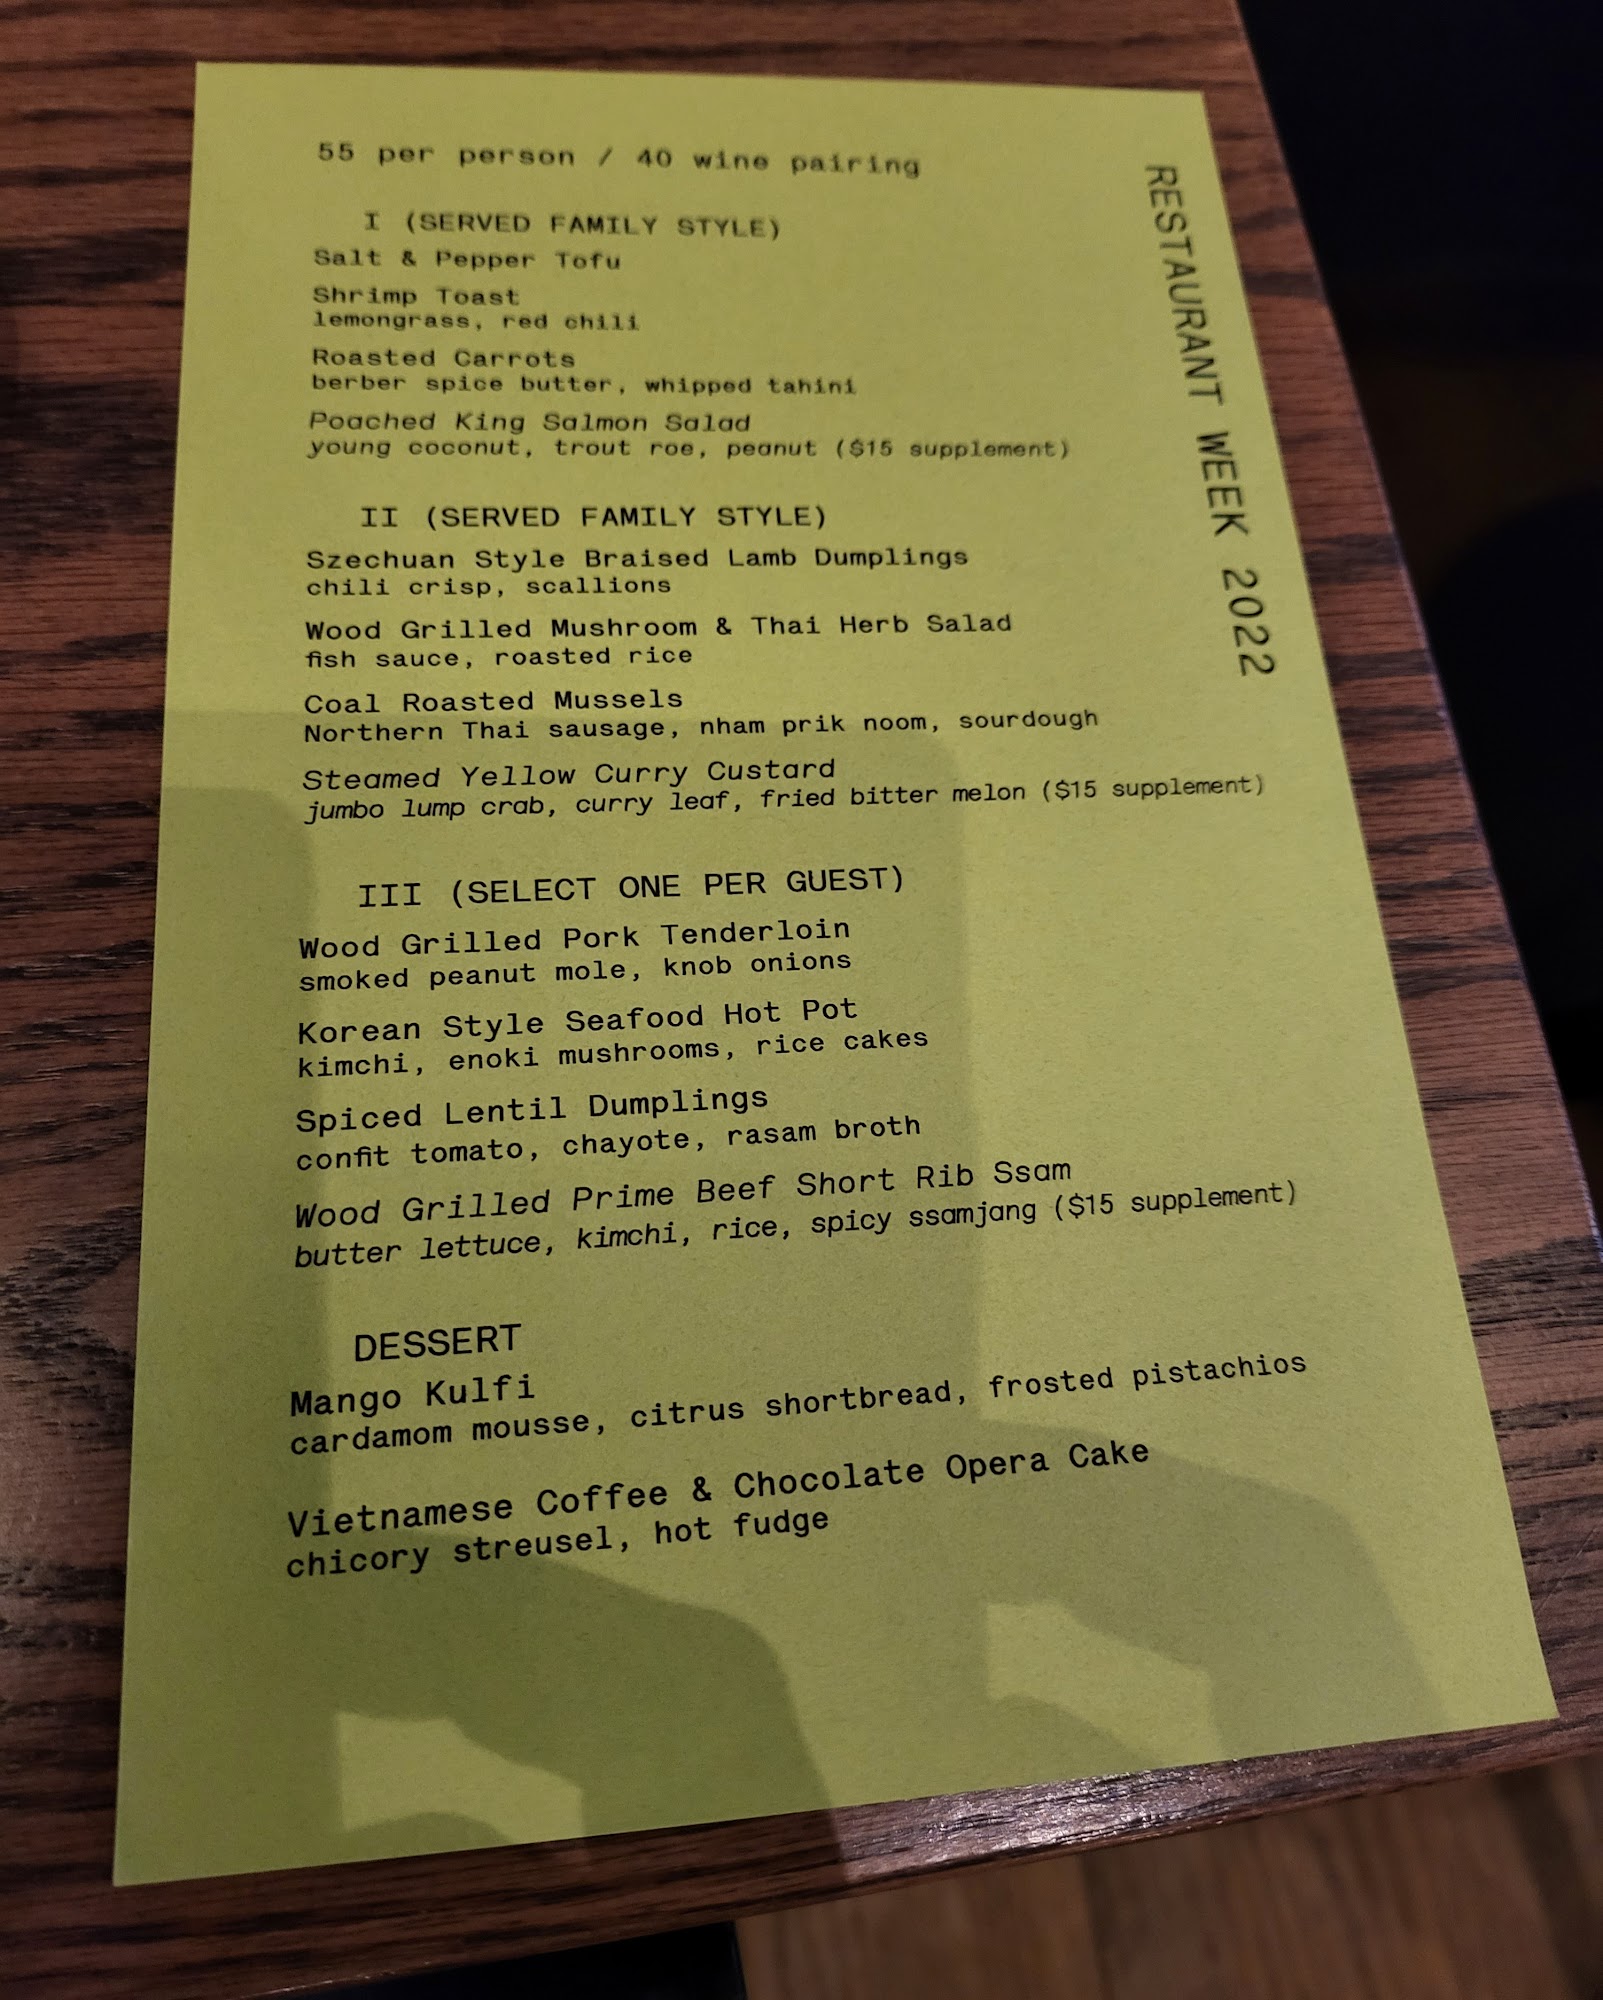 55 per person / 40 wine pairing
I (SERVED FAMILY STYLE)
Salt & Pepper Tofu
Shrimp Toast
lemongrass, red chili
Roasted Carrots
berber spice butter, whipped tahini
Poached King Salmon Salad
young coconut, trout roe, peanut ($15 supplement)
II (SERVED FAMILY STYLE)
Szechuan Style Braised Lamb Dumplings
chili crisp, scallions
Wood Grilled Mushroom & Thai Herb Salad
fish sauce, roasted rice
Coal Roasted Mussels
Northern Thai sausage, nham prik noom, sourdough
Steamed Yellow Curry Custard
jumbo lump crab, curry leaf, fried bitter melon ($15 supplement)
III (SELECT ONE PER GUEST)
Wood Grilled Pork Tenderloin
smoked peanut mole, knob onions
Korean Style Seafood Hot Pot
kimchi, enoki mushrooms, rice cakes
Spiced Lentil Dumplings
confit tomato, chayote, rasam broth
Wood Grilled Prime Beef Short Rib Ssam
butter lettuce, kimchi, rice, spicy ssamjang ($15 supplement)
DESSERT
Mango Kulfi
cardamom mousse, citrus shortbread, frosted pistachios
Vietnamese Coffee & Chocolate Opera Cake
chicory streusel, hot fudge
RESTAURANT WEEK 2022